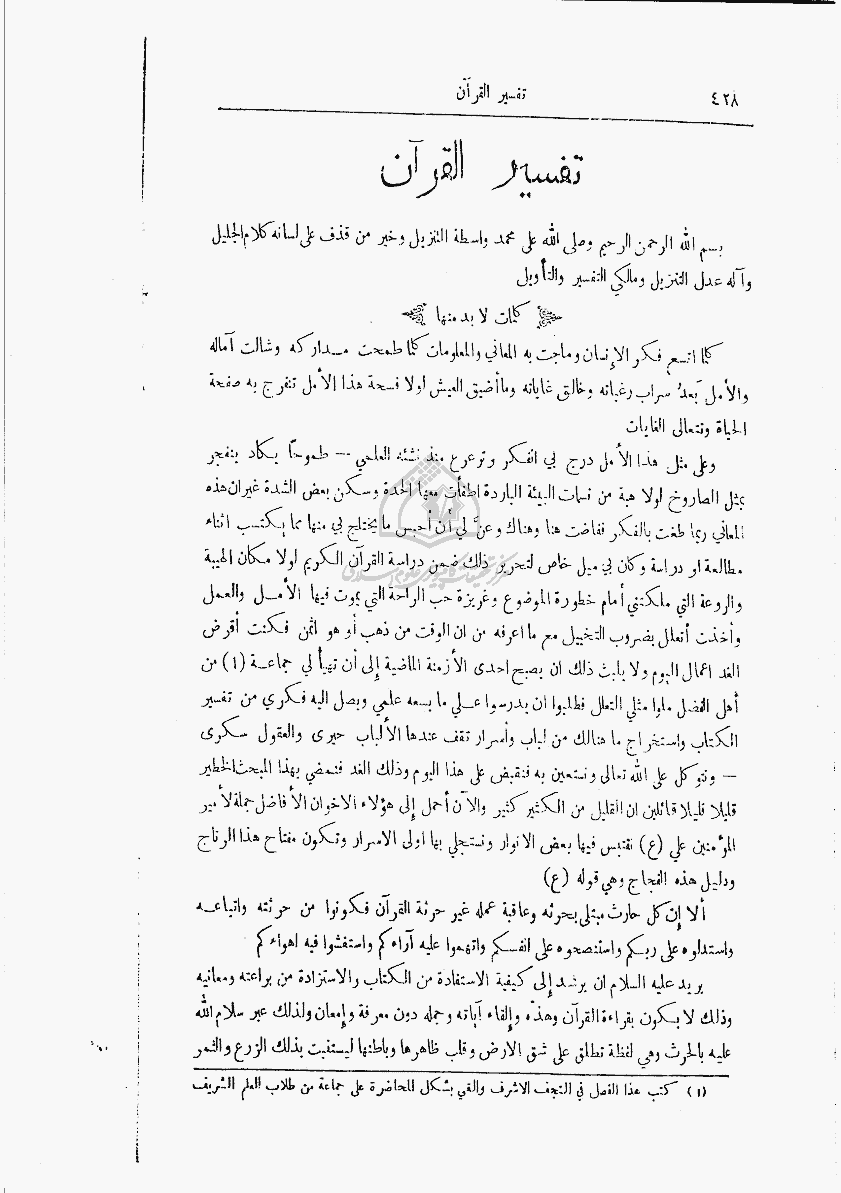 ٤٢٨
تفسير القرآن
تفسير القرآن
بسم الله الرحمن الرحيم وصلى الله على محمد واسطة التنزيل وخير من قذف على لسانه كلام الجليل
وآله عدل التنزيل ومالكي التفسير والتأويل
كلمات لا بد منها
كلما اتسع فكر الإنسان وماجت به المعاني والمعلومات كلما طمحت مداركه وشالت آماله
والأمل بَعدُ سراب رغباته وخالق غاياته وما أضيق العيش لولا فسحة هذا الأمل تنفرج به صفحة
الحياة وتتعالى الغايات
وعلى مثل هذا الأمل درج لي الفكر وترعرع منذ نشئته العلمي – طموحًا يكاد ينفجر
بمثل الصاروخ لولا هبة من نسمات البيئة الباردة اطفأت معها الحدة وسكن بعض الشدة غير ان هذه
المعاني ربما طفت بالفكر ففاضت هنا وهناك وعنَّ لي أن أحبس ما يختلج لي منها مما يكتسب اثناء
مطالعة او دراسة وكان لي ميل خاص لتحرير ذلك ضمن دراسة القرآن الكريم لولا مكان الهيبة
والروعة التي ملكتني أمام خطورة الموضوع وغريزة حب الراحة التي يموت فيها الأمل والعمل
وأخذت أتعلل بضروب التخييل مع ما اعرفه من ان الوقت من ذهب أو هو اثمن فكنت أقرض
الغد اعمال اليوم ولا يلبث ذلك ان يصبح احدى الأزمنة الماضية إلى أن تهيأ لي جماعة (١) من
أهل الفضل ملوا مثلي التعلل فطلبوا ان يدرسوا علي ما يسعه علمي ويصل اليه فكري من تفسير
الكتاب واستخراج ما هنالك من لباب وأسرار تقف عندها الألباب حيرى والعقول سكرى
– ونتوكل على الله تعالى ونستعين به فنقبض على هذا اليوم وذلك الغد فنمضي بهذا المبحث الخطير
قليلا قليلا قائلين ان القليل من الكثير كثير والآن أحمل إلى هؤلاء الاخوان الأفاضل جملة لأمير
المؤمنين علي (ع) نقتبس فيها بعض الانوار ونستجلي بها اولى الاسرار وتكون مفتاح هذا الرتاج
ودليل هذه الفجاج وهي قوله (ع)
ألا إن كل حارث مبتلى بحرثه وعاقبة عمله غير حرثة القرآن فكونوا من حرثته واتباعه
واستدلوه على ربكم واستنصحوه على انفسكم واتهموا عليه آراءكم واستغشوا فيه اهواءكم
يريد عليه السلام ان يرشد إلى كيفية الاستفادة من الكتاب والاستزادة من براعته ومعانيه
وذلك لا يكون بقراءة القرآن وهذّه وإلقاء آياته وجمله دون معرفة وإمعان ولذلك عبر سلام الله
عليه بالحرث وهي لفظة تطلق على شق الارض وقلب ظاهرها وباطنها ليستنبت بذلك الزرع والثمر
(١) كتب هذا الفصل في النجف الاشرف والقي بشكل المحاضرة على جماعة من طلاب العلم الشريف